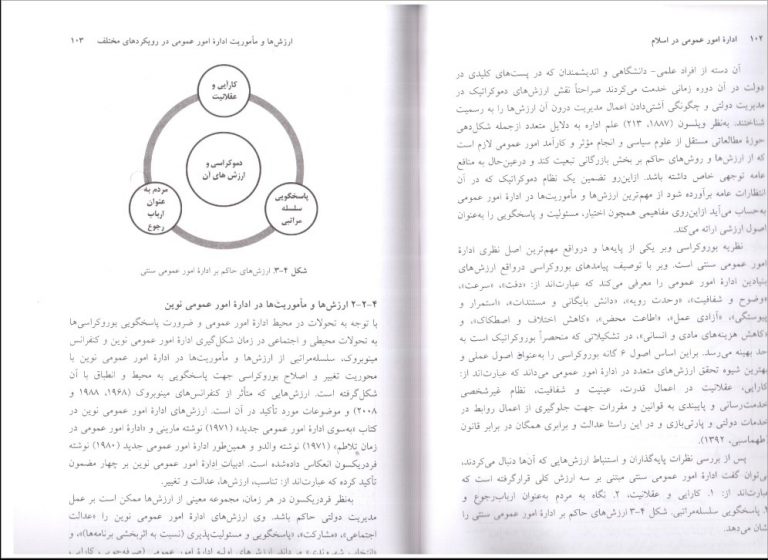 ۱۰۲ ادارهٔ امور عمومی در اسلام
آن دسته از افراد علمی- دانشگاهی و اندیشمندان که در پست‌های کلیدی در
دولت در آن دوره زمانی خدمت می‌کردند صراحتاً نقش ارزش‌های دموکراتیک در
مدیریت دولتی و چگونگی آشتی‌دادن اعمال مدیریت درون آن ارزش‌ها را به رسمیت
شناختند. به‌نظر ویلسون (۱۸۸۷، ۲۱۳) علم اداره به دلایل متعدد ازجمله شکل‌دهی
حوزهٔ مطالعاتی مستقل از علوم سیاسی و انجام مؤثر و کارآمد امور عمومی لازم است
که از ارزش‌ها و روش‌های حاکم بر بخش بازرگانی تبعیت کند و درعین‌حال به منافع
عامه توجهی خاص داشته باشد. ازاین‌رو تضمین یک نظام دموکراتیک که در آن
انتظارات عامه برآورده شود از مهم‌ترین ارزش‌ها و مأموریت‌ها در ادارهٔ امور عمومی
به‌حساب می‌آید ازاین‌روی مفاهیمی همچون اختیار، مسئولیت و پاسخگویی را به‌عنوان
اصول ارزشی ارائه می‌کند.
نظریه بوروکراسی وبر یکی از پایه‌ها و درواقع مهم‌ترین اصل نظری ادارهٔ
امور عمومی سنتی است. وبر با توصیف پیامدهای بوروکراسی درواقع ارزش‌های
بنیادین ادارهٔ امور عمومی را معرفی می‌کند که عبارت‌اند از: «دقت»، «سرعت»،
«وضوح و شفافیت»، «وحدت رویه»، «دانش بایگانی و مستندات»، «استمرار و
پیوستگی»، «آزادی عمل»، «اطاعت محض»، «کاهش اختلاف و اصطکاک»، و
«کاهش هزینه‌های مادی و انسانی»، در تشکیلاتی که منحصراً بوروکراتیک است به
حد بهینه می‌رسد. براین اساس اصول ۶ گانه بوروکراسی را به‌عنوان اصول عملی و
بهترین شیوه تحقق ارزش‌های متعدد در ادارهٔ امور عمومی می‌داند که عبارت‌اند از:
کارایی، عقلانیت در اعمال قدرت، عینیت و شفافیت، نظام غیرشخصی
خدمت‌رسانی و پایبندی به قوانین و مقررات جهت جلوگیری از اعمال روابط در
خدمات دولتی و پارتی‌بازی و در این راستا عدالت و برابری همگان در برابر قانون
طهماسبی، ۱۳۹۲).
پس از بررسی نظرات پایه‌گذاران و استنباط ارزش‌هایی که آن‌ها دنبال می‌کردند،
می‌توان گفت ادارهٔ امور عمومی سنتی مبتنی بر سه ارزش کلی قرارگرفته است که
عبارت‌اند از: ۱. کارایی و عقلانیت، ۲. نگاه به مردم به‌عنوان ارباب‌رجوع و
۳. پاسخگویی سلسله‌مراتبی. شکل ۴-۳ ارزش‌های حاکم بر ادارهٔ امور عمومی سنتی را
شان می‌دهد.
ارزش‌ها و مأموریت ادارهٔ امور عمومی در رویکردهای مختلف ۱۰۳
کارآیی و
عقلانیت
دموکراسی و
ارزش های آن
مردم به
عنوان
ارباب
رجوع
پاسخگویی
سلسله
مراتبی
شکل ۴-۳. ارزش‌های حاکم بر ادارهٔ امور عمومی سنتی
۴-۲-۲ ارزش‌ها و مأموریت‌ها در ادارهٔ امور عمومی نوین
با توجه به تحولات در محیط ادارهٔ امور عمومی و ضرورت پاسخگویی بوروکراسی‌ها
به تحولات محیطی و اجتماعی در زمان شکل‌گیری ادارهٔ امور عمومی نوین و کنفرانس
مینوبروک، سلسله‌مراتبی از ارزش‌ها و مأموریت‌ها در ادارهٔ امور عمومی نوین با
محوریت تغییر و اصلاح بوروکراسی جهت پاسخگویی به محیط و انطباق با آن
شکل‌گرفته است. ارزش‌هایی که متأثر از کنفرانس‌های مینوبروک (۱۹۶۸، ۱۹۸۸ و
۲۰۰۸) و موضوعات مورد تأکید در آن است. ارزش‌های ادارهٔ امور عمومی نوین در
کتاب «به‌سوی ادارهٔ امور عمومی جدید» (۱۹۷۱) نوشته مارینی و «ادارهٔ امور عمومی در
زمان تلاطم» (۱۹۷۱) نوشته والدو و همین‌طور ادارهٔ امور عمومی جدید (۱۹۸۰) نوشته
فردریکسون انعکاس داده‌شده است. ادبیات ادارهٔ امور عمومی نوین بر چهار مضمون
تأکید کرده که عبارت‌اند از: تناسب، ارزش‌ها، عدالت و تغییر.
به‌نظر فردریکسون در هر زمان، مجموعه معینی از ارزش‌ها ممکن است بر عمل
مدیریت دولتی حاکم باشد. وی ارزش‌های ادارهٔ امور عمومی نوین را «عدالت
اجتماعی»، «مشارکت»، «پاسخگویی و مسئولیت‌پذیری (نسبت به اثربخشی برنامه‌ها)»، و
«انتخاب شهروندی» می‌داند. ارزش‌های اولیه ادارهٔ امور عمومی (صرفه‌جویی، کارایی و